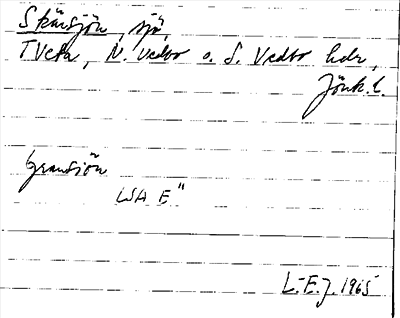 Skärsjön, sjö,
Tveta, N. Vedbo o. S. Vedbo hdr,
Jönk. l.
Gransjön
LSA E"
L-E.J. 1965